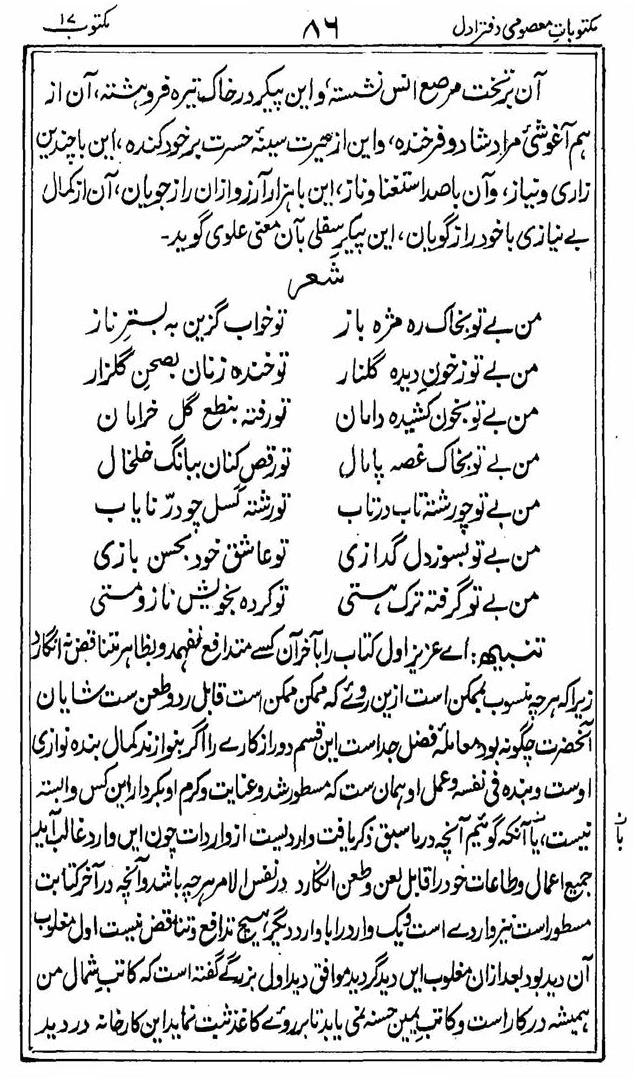 مکتوبات معصومی دفتر اول ۸۶ مکتوب ۱۷
آن بر تخت مرصع انس نشسته، و این پیکر در خاک تیره فروهشته، آن از
ہم آغوشیٔ مراد شاد و فرخنده، و این از حیرت سینۂ حسرت بر خود کنده، این با چندین
زاری و نیاز، و آن با صد استغنا و ناز، این با ہزار آرزو ازان راز جویان، آن از کمال
بے نیازی با خود راز گویان، این پیکر سفلی بآن معنی علوی گوید۔
شعر
من بے تو بخاک ره مژه باز تو خواب گزین به بستر ناز
من بے تو ز خون دیده گلنار تو خنده زنان بصحن گلزار
من بے تو بخون کشیده دامان تو رفته بنطع گل خرامان
من بے تو بخاک غصه پامال تو رقص کنان ببانگ خلخال
من بے تو چو رشتۂ تاب در تاب تو رشته گسل چو درّ نایاب
من بے تو بسوز دل گدازی تو عاشق خود بحسن بازی
من بے تو گرفته ترک ہستی تو کرده بخویش ناز و مستی
تنبیه: اے عزیز اول کتاب را بآخر آن کسے متدافع نفہمد و بظاہر متناقض نہ انگارد
زیرا که ہرچہ منسوب بممکن است ازین روئے که ممکن ممکن است قابل رد و طعن ست شایان
آنحضرت چگونه بود معاملۂ فضل جداست این قسم دور از کارے را اگر بنوازند کمال بنده نوازی
اوست و بنده فی نفسه و عمل او ہمان ست که مسطور شد و عنایت و کرم او بکردار این کس وابسته
نیست، یا آنکه گوئیم آنچه در ما سبق ذکر یافت واردیست از واردات چون ایں وارد غالب آید
جمیع اعمال و طاعات خود را قابل لعن و طعن انگارد در نفس الامر ہرچه باشد و آنچه در آخر کتابت
مسطور است نیز واردے است و یک وارد را با وارد دیگر ہیچ تدافع و تناقض نیست اول مغلوب
آن دید بود بعد ازان مغلوب ایں دید گردید موافق دید اول بزرگے گفته است که کاتب شمال من
ہمیشه در کار است و کاتب یمین حسنه نمی یابد تا بر روئے کاغذ ثبت نماید این کارخانه در دید